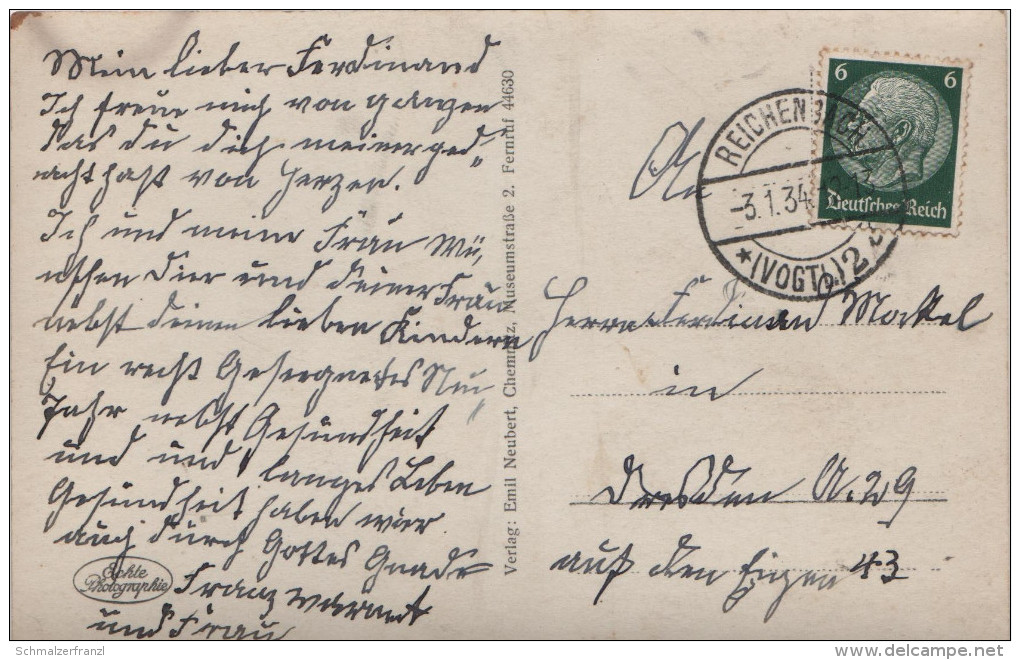 Mein lieber Ferdinand
Ich freue mich von ganzen
das du dich meiner ged„
acht hast von Herzen.
Ich und meine Frau wü„
nschen dier und deiner Frau
nebst deinen lieben Kindern
Ein recht Gesegnetes Neu„
Jahr nebst Gesundheit
und und langes Leben
Gesundheit haben wier
auch durch Gottes Gnade
Franz
und Frau
Echte
Photographie
Verlag: Emil Neubert, Chemnitz, Museumstraße 2. Fernruf 44630
6 6
Deutsches Reich
REICHENBACH
-3.1.34
*(VOGTL)2
An
Herrn Ferdinand Mockel
in
Dresden A. 29
auf den Eigen 43
Schmalzerfranzl
delcampe.net